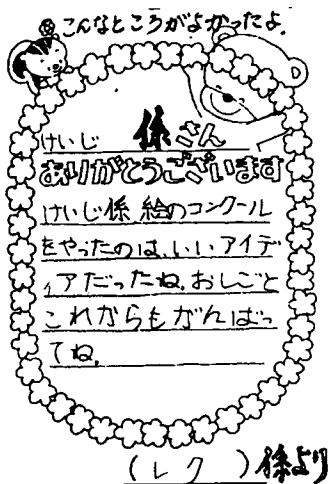 こんなところがよかったよ.
けいじ 係さん
ありがとうございます
けいじ係 絵のコンクール
をやったのは、いいアイデ
ィアだったね。おしごと
これからもがんばっ
てね。
(レク)係より